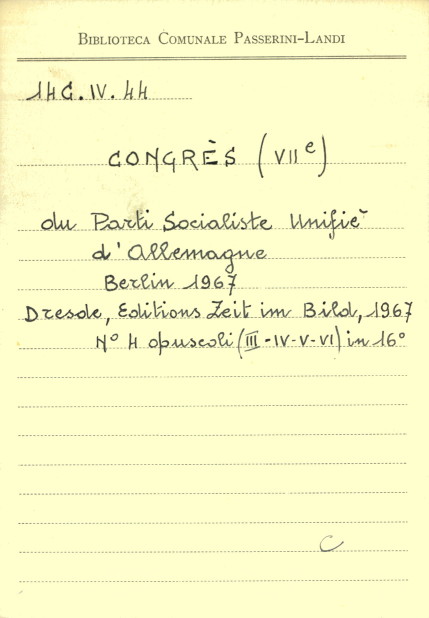 BIBLIOTECA COMUNALE PASSERINI-LANDI
14G.IV.44
CONGRÈS (VIIe)
du Parti Socialiste Unifiè
d'Allemagne
Berlin 1967
Dresde, Editions Zeit im Bild, 1967
N° 4 opuscoli (III-IV-V-VI) in 16°
C